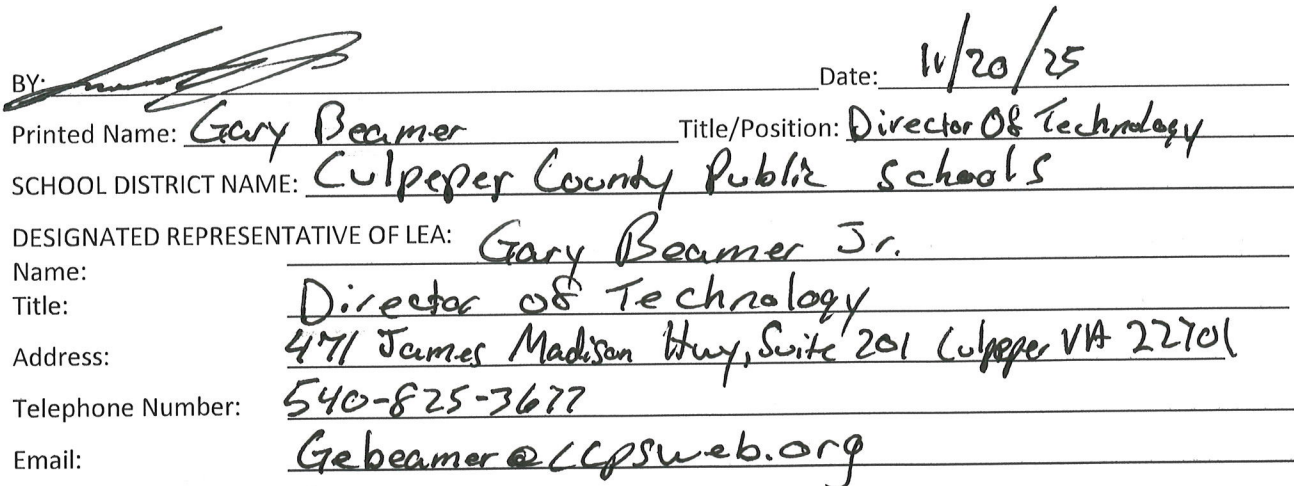 BY: Date: 11/20/25
Printed Name: Gary Beamer Title/Position: Director Of Technology
SCHOOL DISTRICT NAME: Culpeper County Public Schools
DESIGNATED REPRESENTATIVE OF LEA:
Name: Gary Beamer Jr.
Title: Director of Technology
Address: 471 James Madison Hwy, Suite 201 Culpeper VA 22701
Telephone Number: 540-825-3677
Email: Gebeamer@ccpsweb.org